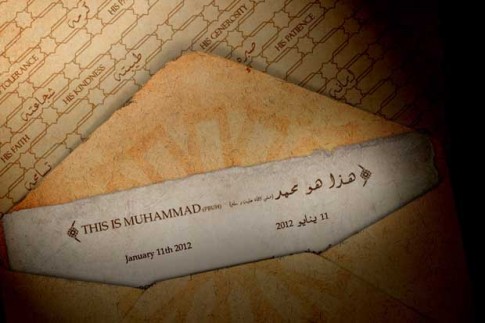 HIS GENEROSITY
HIS PATIENCE
TOLERANCE
HIS KINDNESS
HIS FAITH
شجاعته
THIS IS MUHAMMAD (PBUH) - (صلى الله عليه وسلم) هذا هو محمد
January 11th 2012
11 يناير 2012